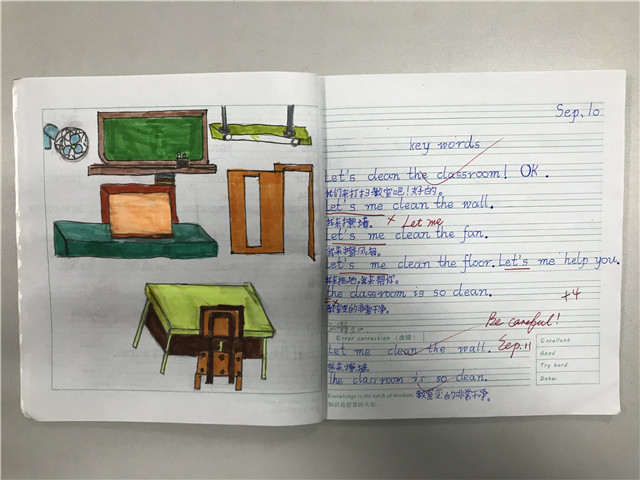 Sep. 10
key words
Let's clean the classroom! OK.
我们来打扫教室吧!好的。
Let's me clean the wall.
我来擦墙。 × Let me
Let's me clean the fan.
我来擦风扇。
Let's me clean the floor. Let's me help you.
我来拖地,我来帮你。
the classroom is so clean.
+4
教室变的非常干净。
Be careful!
Error correction (改错)
Excellent
Let me clean the wall. Sep. 11
Good
我来擦墙。
Try hard
The classroom is so clean.
Date:
Knowledge is the torch of wisdom. 教室变的非常干净。
知识是智慧的火炬。